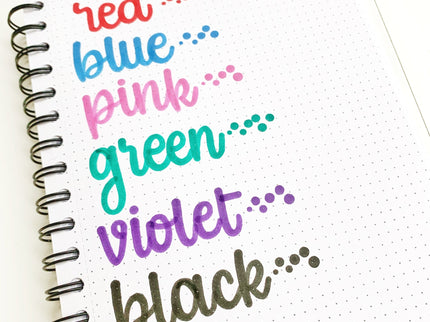 red
blue
pink
green
violet
black